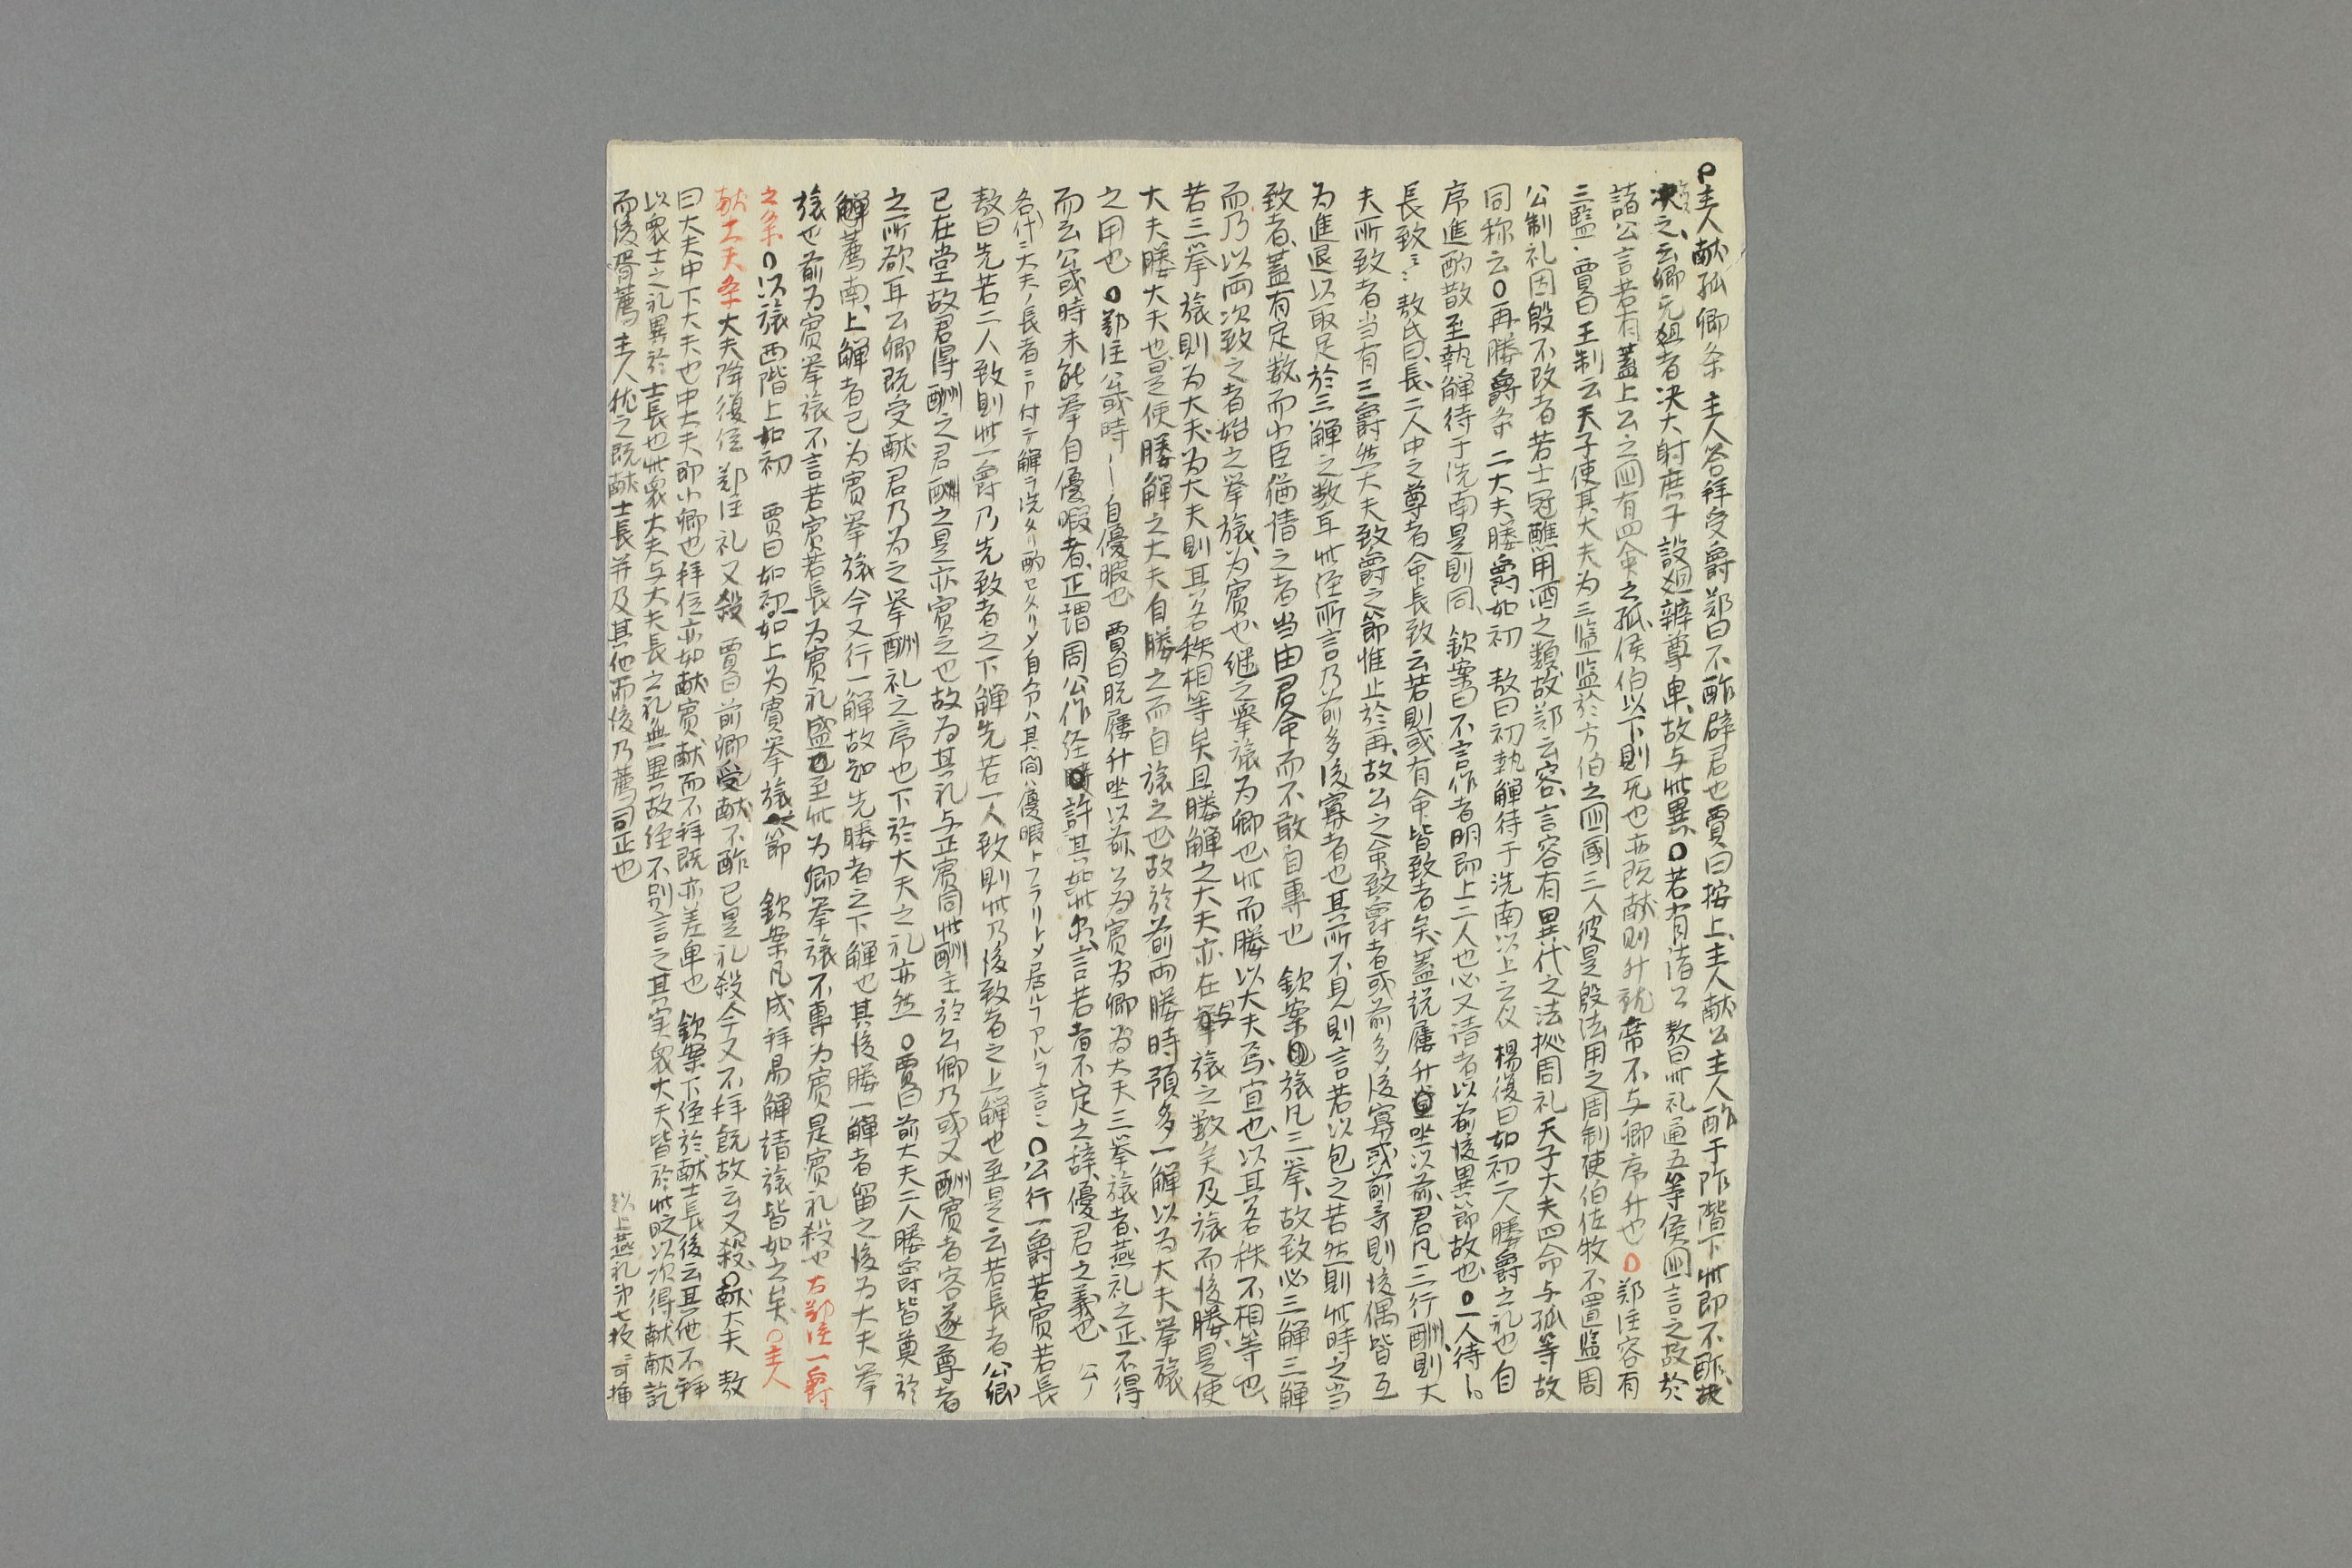 主人献孤卿条　主人答拝受爵鄭曰不酢辟君也賈曰按上主人献公主人酢于阼階下此即不酢故
決之云卿无俎者决大射庶子設俎辨尊卑故与此異〇若有諸公敖曰此礼通五等侯国言之故於
諸公言若有蓋上公之国有四命之孤侯伯以下則无也亦既献則升就席不与卿序升也〇鄭注容有
三監賈曰王制云天子使其大夫为三監監於方伯之国國三人彼是殷法用之周制使伯佐牧不置監周
公制礼因殷不改者若士冠醮用酒之類故鄭云容言容有異代之法拠周礼天子大夫四命与孤等故
同称公〇再媵爵条　二大夫媵爵如初　敖曰初執觶待于洗南以上之仪　楊復曰如初二人媵爵之礼也自
序進酌散至執觶待于洗南是則同　欽案曰不言作者明即上二人也必又請者以前後異節故也〇一人待
長致ミ敖氏曰長二人中之尊者命長致云若則或有命皆致者矣蓋説屨升坐以前君凡三行酬則大
夫所致者当有三爵然大夫致爵之節惟止於再故公之命致爵者或前多後寡或前奇則後偶皆互
为進退以取足於三觶之数耳此経所言乃前多後寡者也其所不見則言若以包之若然則此時之当
致者蓋有定数而小臣猶請之者当由君命而不敢自専也　欽案旅凡三挙故致必三觶三觶
而乃以両次致之者始之挙旅为賓也継之挙旅为卿也此而媵以大夫焉宜也以其名秩不相等也
若三挙旅則为大夫为大夫則其名秩相等矣且媵觶之大夫亦在与旅之数矣及旅而後媵是使
大夫媵大夫也是使媵觶之大夫自媵之而自旅之也故於前両媵時預多一觶以为大夫挙旅
之用也〇鄭注公或時ー自優暇也　賈曰脱屨升坐以前公为賓为卿为大夫三挙旅者燕礼之正不得
而云公或時未能挙自優暇者正謂周公作経許其如此公言若者不定之辞優君之義也　公ノ
各代ニ大夫ノ長者ニ申付テ觶ヲ洗タリ酌セタリメ自分ハ其間ハ優暇トフラリトメ居ルフアルヲ言ニ〇公行一爵若賓若長
敖曰先若二人致則此一爵乃先致者之下觶先若一人致則此乃後致者之上觶也至是云若長者公卿
已在堂故君得酬之君酬之是亦賓之也故为其礼与正賓同此酬主於公卿乃或又酬賓者容遂尊者
之所欲耳公卿既受献君乃为之挙酬礼之序也下於大夫之礼亦然〇賈曰前大夫二人媵爵皆奠於
觶薦南上觶者已为賓挙旅今又行一觶故知先媵者之下觶也其後媵一觶者留之後为大夫挙
旅也前为賓挙旅不言若賓若長为賓礼盛也至此为卿挙旅不専为賓是賓礼殺也　右鄭注一爵
之条〇以旅西階上如初　賈曰如初一如上为賓挙旅之節　欽案凡成拝易觶請旅皆如之矣〇主人
献大夫条大夫降復位　鄭注礼又殺　賈曰前卿受献不酢已是礼殺今又不拝既故云又殺〇献大夫　敖
曰大夫中下大夫也中大夫即小卿也拝位亦如献賓献而不拝既亦差卑也　欽案下経於献士長後云其他不拝
以衆士之礼異於士長也此衆大夫与大夫長之礼無異故経不別言之其実衆大夫皆於此時以次得献献訖
而後胥薦主人执之既献士長并及其他而後乃薦司正也　以上燕礼卅七枚ニ可挿